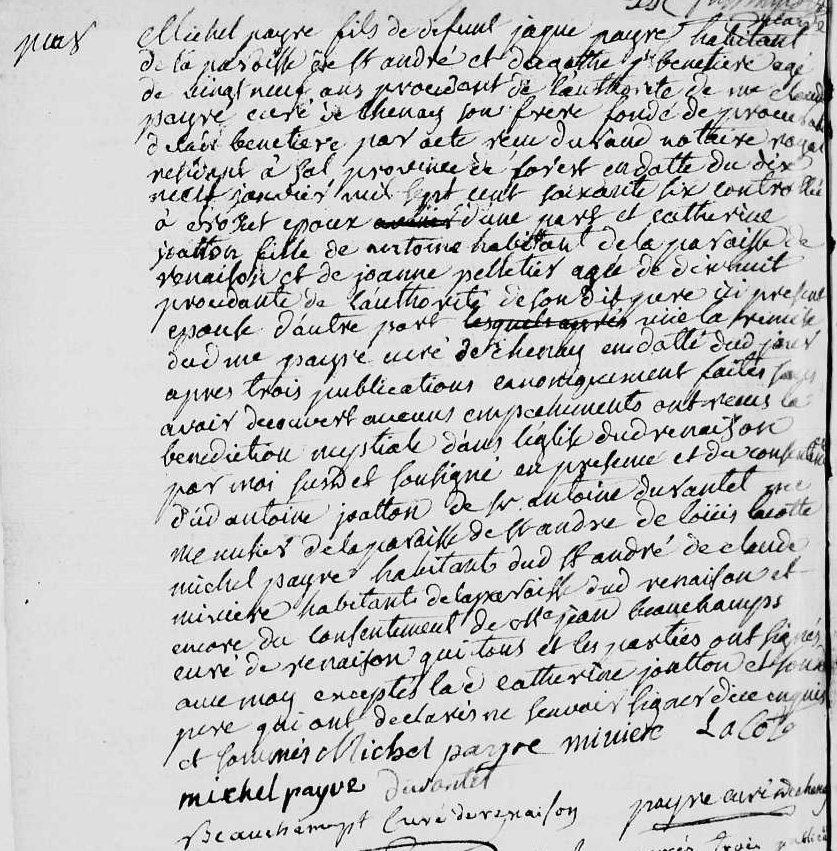 Michel payre fils de defunt jaque payre habitant
de la paroisse de st andré et dagathe benetiere agé
de vingt neuf ans procedant de l'authorité de me claude
payre curé de chenay son frere fondé de procuration
de benetiere par acte recu durand notaire royal
residant à sal province de forest en datte du dix
neuf janvier mil sept cent soixante six controllé
à epoux d'une part et catherine
jootton fille de antoine habitant de la paroisse de
renaison et de joanne pelletier agée de dixhuit
procedante de l'authorité de son dit pere ici present
epouse d'autre part lesquels après vue la remise
dud me payre curé de chenay en datte dud jour
apres trois publications canoniquement faites sans
avoir decouvert aucuns empechements ont recus la
benediction nuptiale dans l'église dud renaison
par moi susd et soussigné en presence et du consentement
dud antoine jootton de sr antoine durantet me
menusier de la paroisse de st andre de loüis lacotte
michel payre habitants dud st andré de claude
miniere habitants de la paroisse dud renaison et
encore du consentement de me jean beauchamps
curé de renaison qui tous et les parties ont signés
avec moy exceptés la d catherine jootton et son
pere qui ont declarés ne scavoir signer de ce enquis
et sommés Michel payre miniere LaCote
michel payre durantet
Beauchampt Curé de renaison payre curé de chenay
trois